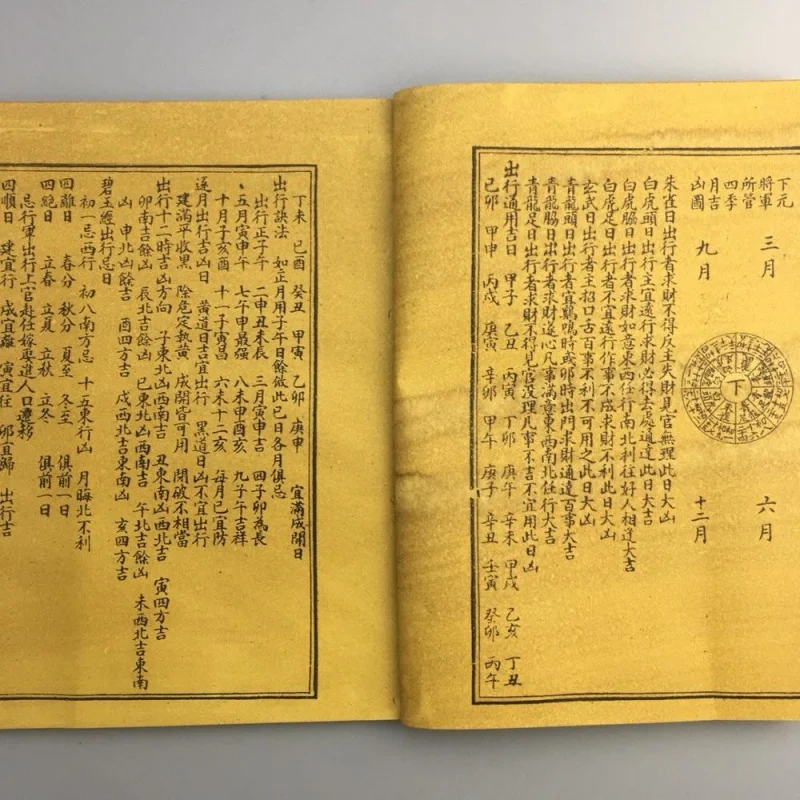 下元
將軍 三月 六月
所管
四季
月吉 九月 十二月
凶圖
下
朱雀日出行者求財不得反主失財見官無理此日大凶
白虎頭日出行主宜遠行求財必得去處通達此日大吉
白虎脇日出行者求財如意東西任行南北利往好人相逢大吉
白虎足日出行者不宜遠行作事不成求財不利此日大凶
玄武日出行者主招口舌百事不利不可用之此日大凶
青龍頭日出行者宜鷄鳴時或卯時出門求財通達百事大吉
青龍脇日出行者求財遂心凡事滿意東西南北任行大吉
青龍足日出行者求財不得見官沒理凡事不吉不宜用此日凶
出行通用吉日 甲子 乙丑 丙寅 丁卯 庚午 辛未 甲戌 乙亥 丁丑
己卯 甲申 丙戌 庚寅 辛卯 甲午 庚子 辛丑 壬寅 癸卯 丙午
丁未 己酉 癸丑 甲寅 乙卯 庚申 宜滿成開日
出行訣法 如正月用子午日餘倣此巳日各月俱忌
出行正子午 二申丑未辰 三月寅申吉 四子卯為長
五月寅申午 七午申最强 八未申酉亥 九子午吉祥
十月子亥酉 十一子寅昌 六未十二亥 每月已宜防
逐月出行吉凶日 黃道日吉宜出行 黑道日凶不宜出行
建滿平收黑 除危定執黃 成開皆可用 閉破不相當
出行十二時吉凶方向 子東北凶西南吉 丑東南凶西北吉 寅四方吉
卯南吉餘凶 辰北吉餘凶 巳東北凶西南吉 午北吉餘凶 未西北吉東南
凶 申北凶餘吉 酉四方吉 戌西北吉東南凶 亥四方吉
碧玉經出行忌日
初一忌西行 初八南方忌 十五東行凶 月晦北不利
四離日 春分 秋分 夏至 冬至 俱前一日
四絕日 立春 立夏 立秋 立冬 俱前一日
忌行軍出行上官赴任嫁娶進人口遷移
四順日 建宜行 成宜離 寅宜往 卯宜歸 出行吉